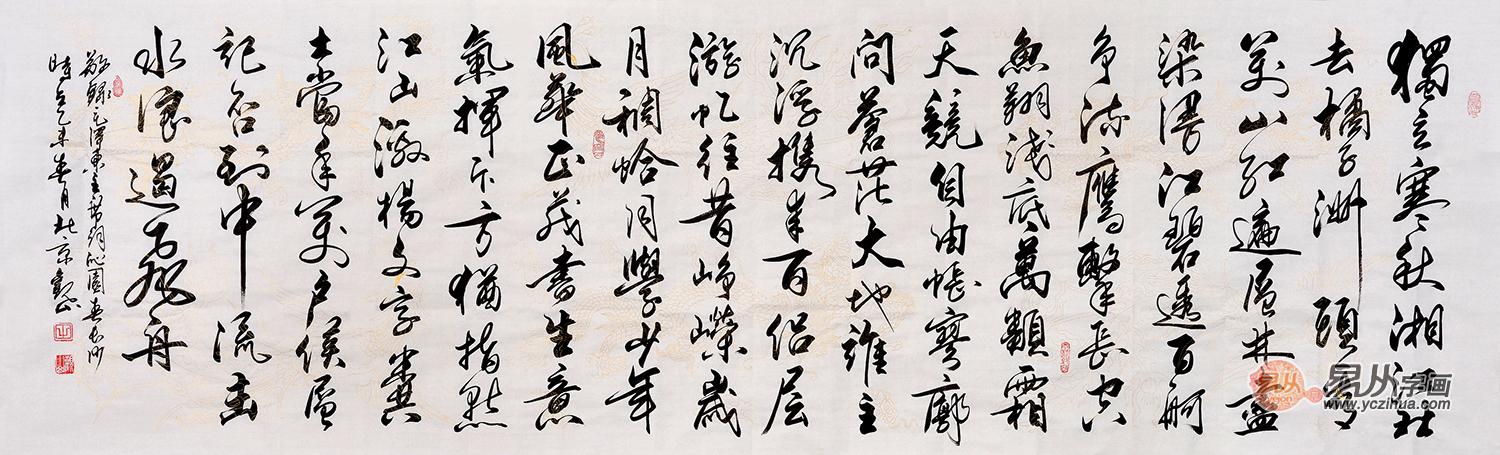 獨立寒秋湘江北
去橘子洲頭看
萬山紅遍層林盡
染漫江碧透百舸
争流鷹擊長空
魚翔淺底萬類霜
天競自由悵寥廓
問蒼茫大地誰主
沉浮携來百侣曾
游憶往昔崢嶸歲
月稠恰同學少年
風華正茂書生意
氣揮斥方遒指點
江山激揚文字糞
土當年萬户侯曾
記否到中流擊
水浪遏飛舟
敬録毛澤東主席詞沁園春長沙
時在乙未春月於京觀山
易从字画
www.yczihua.com